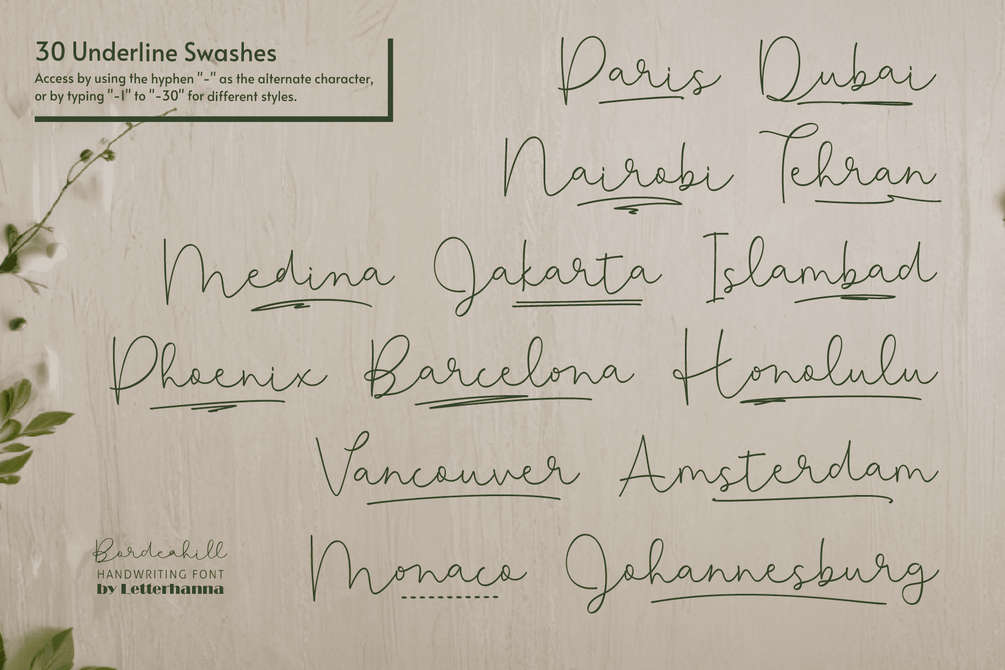 30 Underline Swashes
Access by using the hyphen "-" as the alternate character,
or by typing "-1" to "-30" for different styles.
Paris Dubai
Nairobi Tehran
Medina Jakarta Islambad
Phoenix Barcelona Honolulu
Vancouver Amsterdam
Monaco Johannesburg
Bordeahill
HANDWRITING FONT
by Letterhanna